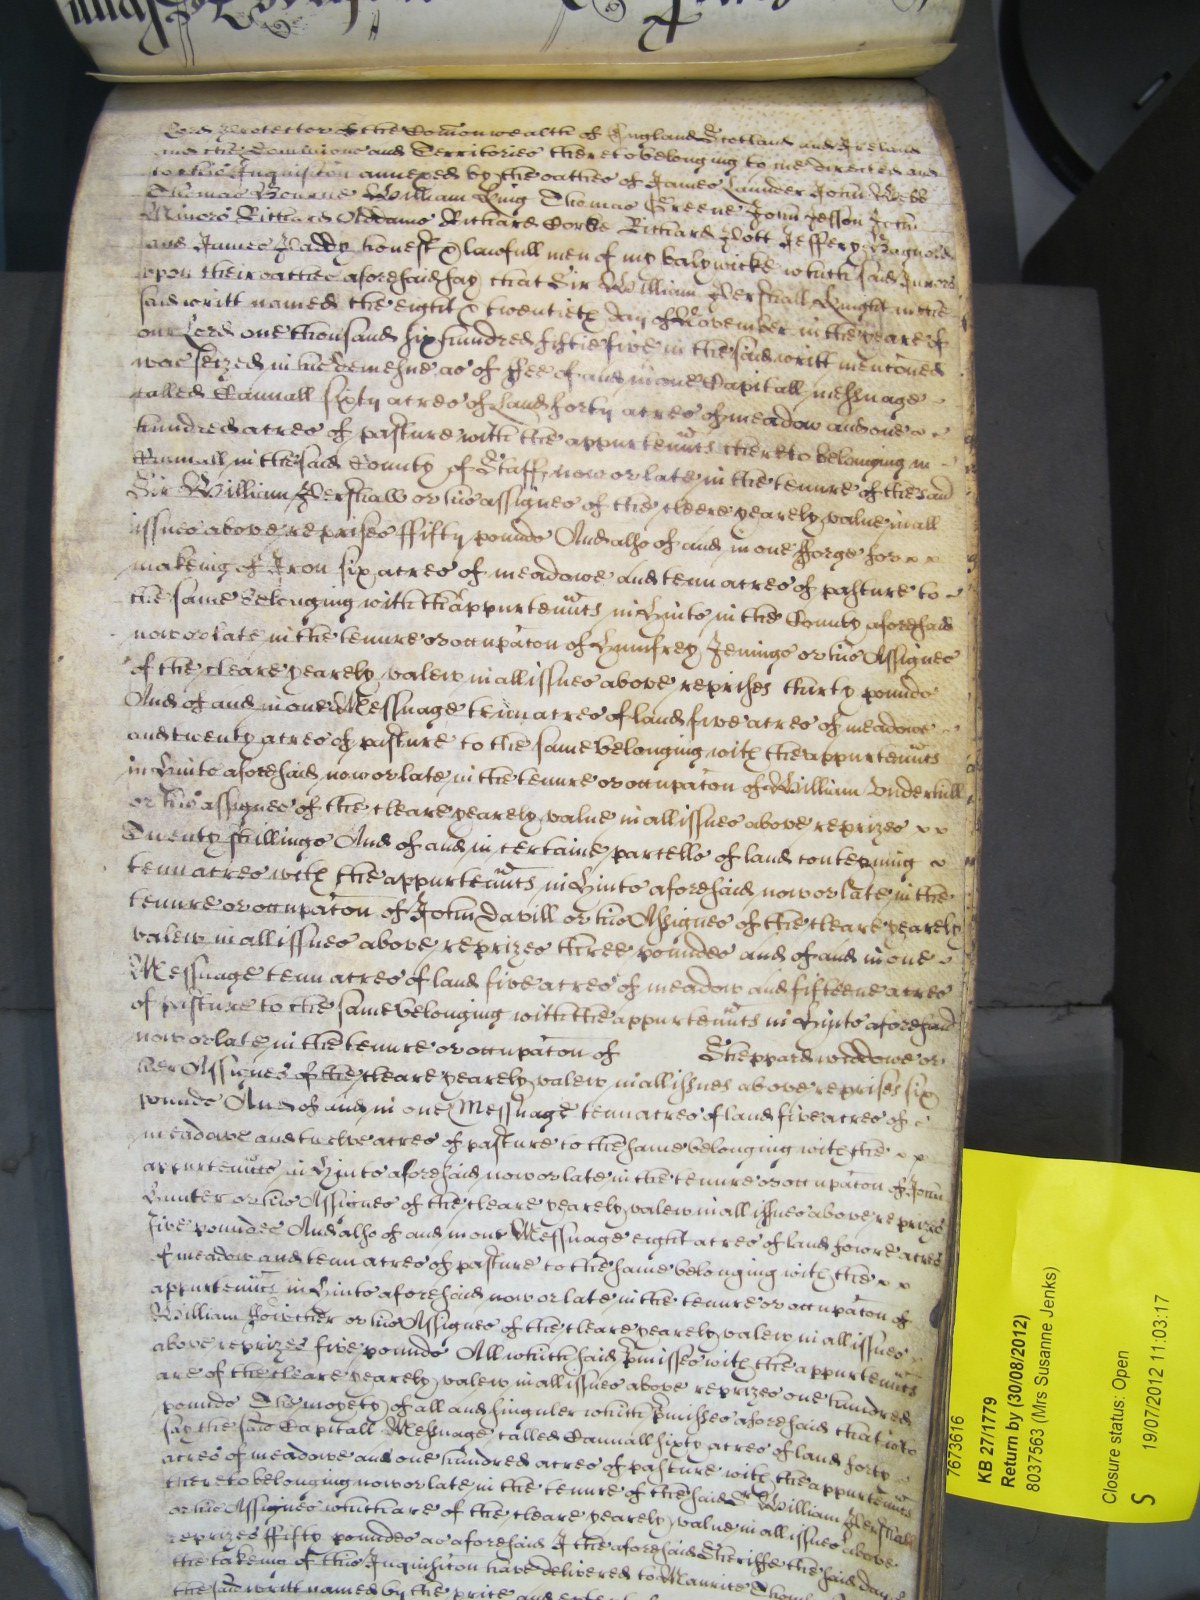 Lord Protector of the Comonwealth of England Scotland and Ireland
and the Dominions and Territories thereto belonging to me directed and
to this Inquisicon annexed by the oathes of James Launder John Webb
Thomas Bourne William King Thomas Greene John Jesson John
Minors Richard Olddams Richard Corke Richard Pott Jeffery Bagnold
and James Paddy honest & lawfull men of my balywicke which said Jurors
upon their oathes aforesaid say that Sir William Pershall Knight in the
said writt named the eight & twentieth day of November in the yeare of
our Lord one thousand six hundred fiftie five in the said writt mencioned
was seized in his demesne as of ffee of and in one Capitall messuage
called Cannall sixty acres of Land forty acres of meadow and one
hundred acres of pasture with the appurtennts thereto belonging in
Cannall in the said County of Staff now or late in the tenure of the said
Sir William Pershall or his assignes of the cleere yearely value in all
issues above reprises ffifty pounds And also of and in one fforge for
makeing of Iron six acres of meadowe and tenn acres of pasture to
the same belonging with thappurtennts in Hints in the County aforesaid
now or late in the tenure or occupacon of Humfrey Jenings or his Assignes
of the cleare yearely valew in all issues above reprises thirty pounds
And of and in one Messuage tenn acres of land five acres of meadowe
and twenty acres of pasture to the same belonging with the appurtennts
in Hints aforesaid now or late in the tenure or occupacon of William Underhill
or his assignes of the cleare yearely value in all issues above reprizes
Twenty shillings And of and in certaine parcells of land conteyning
tenn acres with the appurtennts in Hints aforesaid now or late in the
tenure or occupacon of John Davill or his Assignes of the cleare yearely
valew in all issues above reprizes three poundes and of and in one
Messuage tenn acres of land five acres of meadow and fifteene acres
of pasture to the same belonging with the appurtennts in Hints aforesaid
now or late in the tenure or occupacon of Sheppard widdowe or
her Assignes of the cleare yearely valew in all issues above reprises six
pounds And of and in one Messuage tenn acres of land five acres of
meadowe and twelve acres of pasture to the same belonging with the
appurtennts in Hints aforesaid now or late in the tenure or occupacon of John
Hunter or his Assignes of the cleare yearely valew in all issues above reprizes
five poundes And also of and in one Messuage eight acres of land fowre acres
of meadow and tenn acres of pasture to the same belonging with the
appurtennts in Hints aforesaid now or late in the tenure or occupacon of
William or his Assignes of the cleare yearely valew in all issues
above reprizes five pounds All which said pmisses with the appurtennts
are of the cleare yearely valew in all issues above reprizes one hundred
pounds The moyety of all and singuler which pmisses aforesaid that is to
say the said Capitall Messuage called Cannall sixty acres of land forty
acres of meadowe and one hundred acres of pasture with the appurtennts
thereto belonging now or late in the tenure of the said Sr William Pershall
or his Assignes which are of the cleare yearely value in all issues above
reprizes ffifty poundes as aforesaid I the aforesaid Sheriffe the said day
the takeing of this Inquisicon have delivered to Maurice
the said writt named by the price and
7673616
KB 27/1779
Return by (30/08/2012)
8037563 (Mrs Susanne Jenks)
Closure status: Open
S 19/07/2012 11:03:17